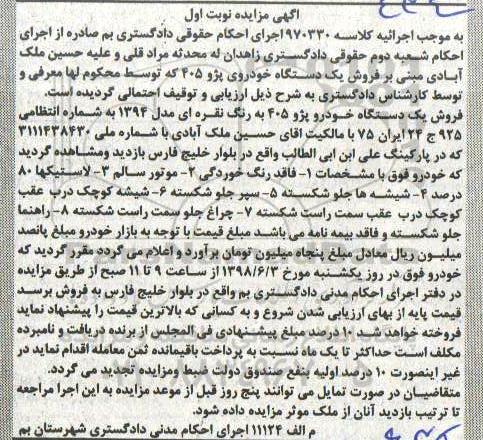 آگهی مزایده نوبت اول
به موجب اجرائیه کلاسه ۹۷۰۳۳۰ اجرای احکام حقوقی دادگستری بم صادره از اجرای
احکام شعبه دوم حقوقی دادگستری زاهدان له محدثه مراد قلی و علیه حسین ملک
آبادی مبنی بر فروش یک دستگاه خودروی پژو ۴۰۵ که توسط محکوم لها معرفی و
توسط کارشناس دادگستری به شرح ذیل ارزیابی و توقیف احتمالی گردیده است.
فروش یک دستگاه خودرو پژو ۴۰۵ به رنگ نقره ای مدل ۱۳۹۴ به شماره انتظامی
۹۲۵ ج ۲۴ ایران ۷۵ با مالکیت اقای حسین ملک آبادی با شماره ملی ۳۱۱۱۴۳۸۴۳۰
که در پارکینگ علی ابن ابی الطالب واقع در بلوار خلیج فارس بازدید ومشاهده گردید
که خودرو فوق با مشخصات ۱- فاقد رنگ خوردگی ۲- موتور سالم ۳- لاستیکها ۸۰
درصد ۴- شیشه ها جلو شکسته ۵- سپر جلو شکسته ۶- شیشه کوچک درب عقب
کوچک درب عقب سمت راست شکسته ۷- چراغ جلو سمت راست شکسته ۸- راهنما
جلو شکسته و فاقد بیمه نامه می باشد مبلغ قیمت با توجه به بازار خودرو مبلغ پانصد
میلیون ریال معادل مبلغ پنجاه میلیون تومان برآورد و اعلام می گردد مقرر گردید که
خودرو فوق در روز یکشنبه مورخ ۱۳۹۸/۶/۳ از ساعت ۹ تا ۱۱ صبح از طریق مزایده
در دفتر اجرای احکام مدنی دادگستری بم واقع در بلوار خلیج فارس به فروش برسد
قیمت پایه از بهای ارزیابی شدن شروع و به کسانی که بالاترین قیمت را پیشنهاد نماید
فروخته خواهد شد ۱۰ درصد مبلغ پیشنهادی فی المجلس از برنده دریافت و نامبرده
مکلف است حداکثر تا یک ماه نسبت به پرداخت باقیمانده ثمن معامله اقدام نماید در
غیر اینصورت ۱۰ درصد اولیه بنفع صندوق دولت ضبط ومزایده تجدید می گردد.
متقاضیان در صورت تمایل می توانند پنج روز قبل از موعد مزایده به این اجرا مراجعه
تا ترتیب بازدید آنان از ملک موثر مزایده داده شود.
م الف ۱۱۱۲۴ اجرای احکام مدنی دادگستری شهرستان بم